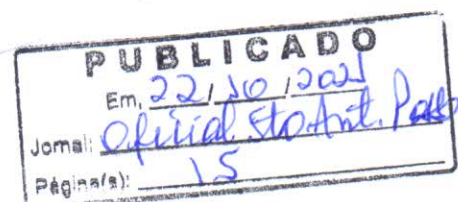 PUBLICADO
Em, 22/10/2021
Jornal: Oficial Sto. Ant. Posse
Página(s): 15